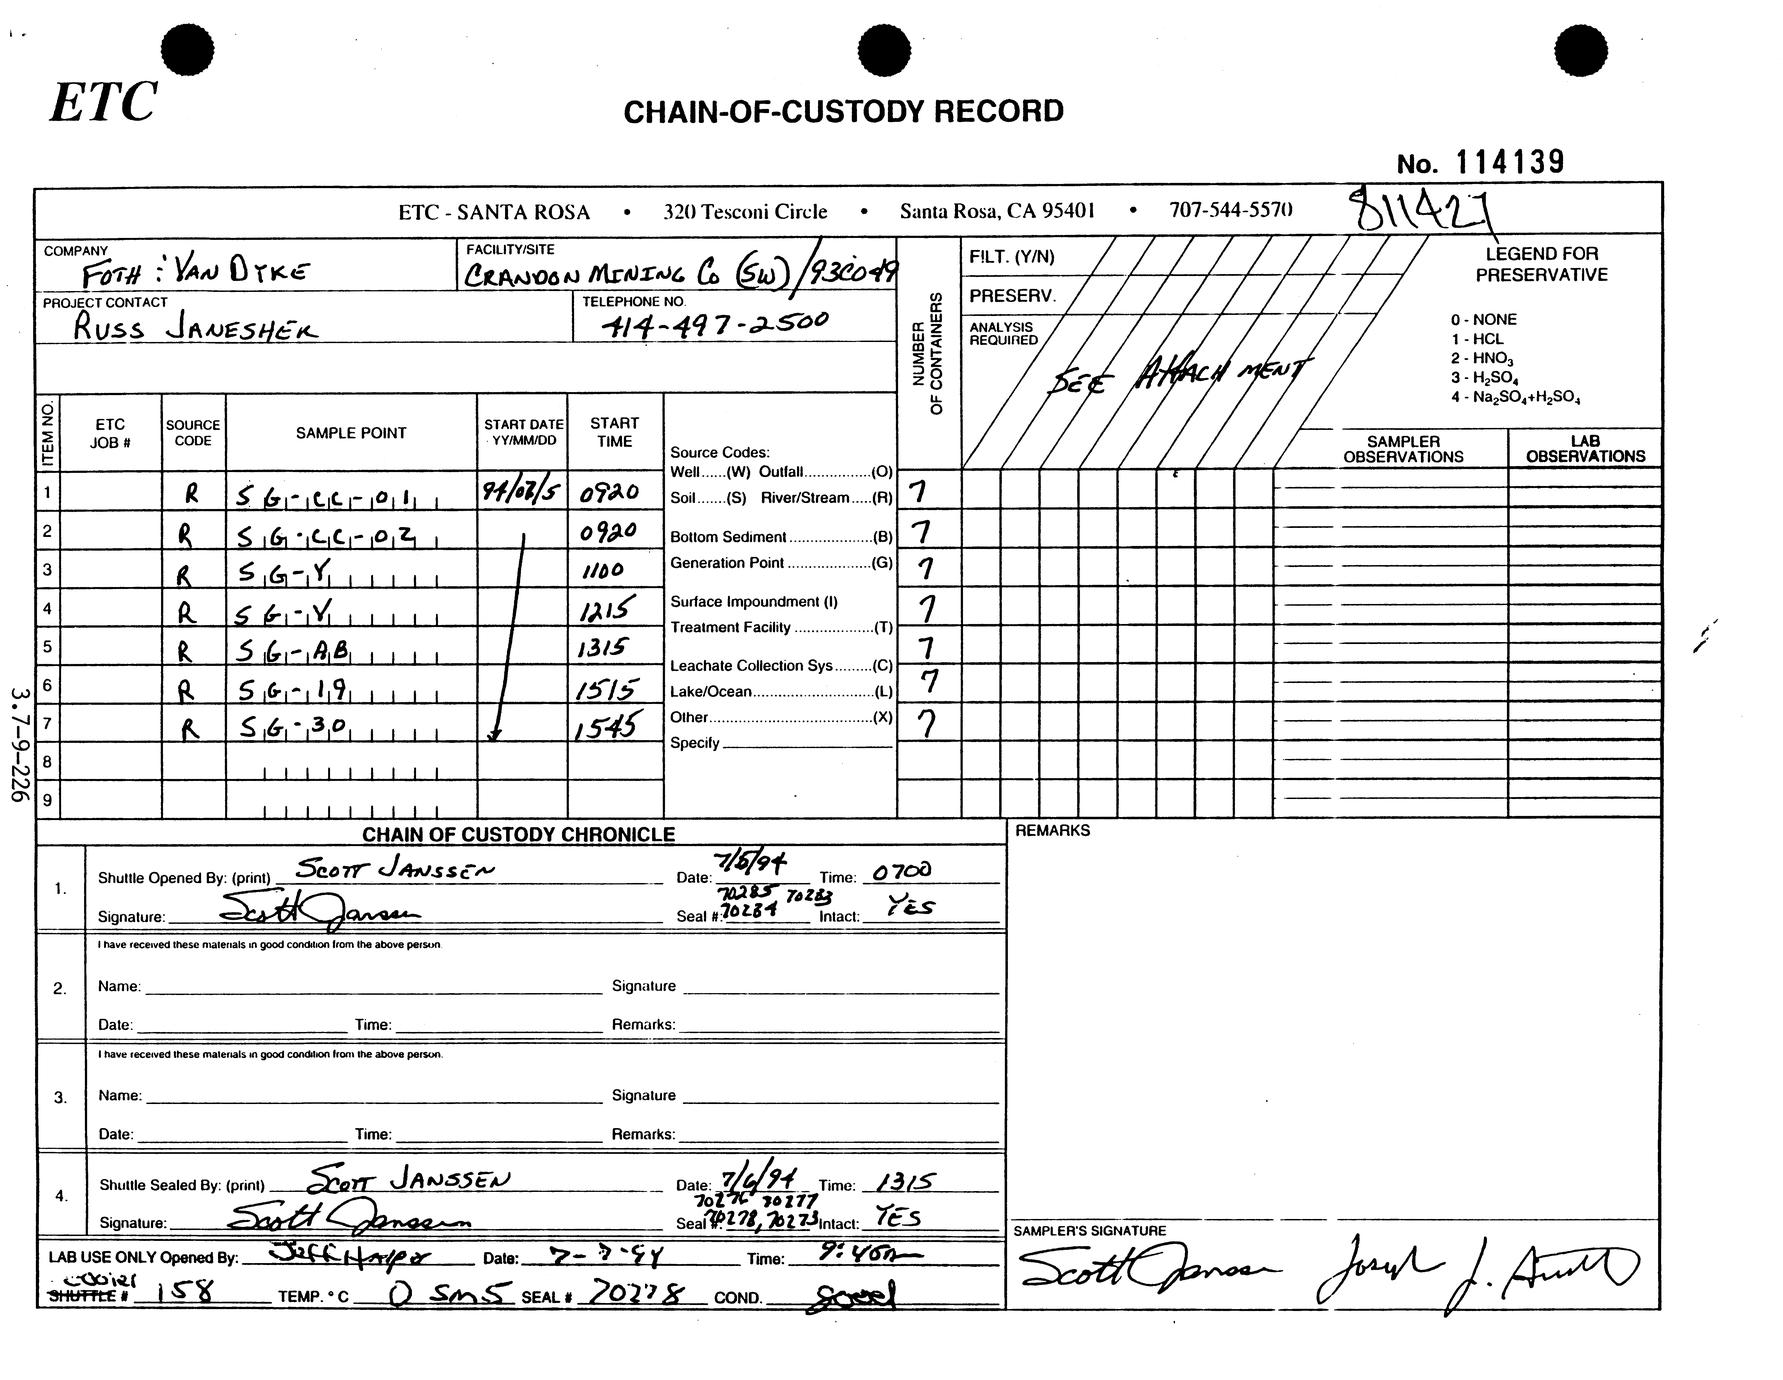 ETC
CHAIN-OF-CUSTODY RECORD
No. 114139
ETC - SANTA ROSA • 320 Tesconi Circle • Santa Rosa, CA 95401 • 707-544-5570 811427
COMPANY
FOTH : VAN DYKE
FACILITY/SITE
CRANDON MINING CO (SW) /93C049
PROJECT CONTACT
RUSS JANESHEK
TELEPHONE NO.
414-497-2500
NUMBER OF CONTAINERS
FILT. (Y/N)
PRESERV.
ANALYSIS REQUIRED
SEE ATTACHMENT
LEGEND FOR PRESERVATIVE
0 - NONE
1 - HCL
2 - HNO3
3 - H2SO4
4 - Na2SO4+H2SO4
ITEM NO. ETC JOB # SOURCE CODE SAMPLE POINT START DATE YY/MM/DD START TIME
SAMPLER OBSERVATIONS LAB OBSERVATIONS
1 R SG-CC-01 94/07/5 0920 7
2 R SG-CC-02 0920 7
3 R SG-Y 1100 7
4 R SG-V 1215 7
5 R SG-AB 1315 7
6 R SG-19 1515 7
7 R SG-30 1545 7
8
9
Source Codes:
Well......(W) Outfall...............(O)
Soil.......(S) River/Stream.....(R)
Bottom Sediment...................(B)
Generation Point...................(G)
Surface Impoundment (I)
Treatment Facility...................(T)
Leachate Collection Sys.........(C)
Lake/Ocean...........................(L)
Other.....................................(X)
Specify
3.7-9-226
CHAIN OF CUSTODY CHRONICLE
REMARKS
1. Shuttle Opened By: (print) SCOTT JANSSEN Date: 7/5/94 Time: 0700
70285 70283
Signature: Scott Janssen Seal #: 70284 Intact: YES
I have received these materials in good condition from the above person.
2. Name: Signature
Date: Time: Remarks:
I have received these materials in good condition from the above person.
3. Name: Signature
Date: Time: Remarks:
4. Shuttle Sealed By: (print) SCOTT JANSSEN Date: 7/6/94 Time: 1315
70276 70277
Signature: Scott Janssen Seal #: 70278, 70273 Intact: YES
LAB USE ONLY Opened By: Jeff Date: 7-7-94 Time: 9:40am
cooler
SHUTTLE # 158 TEMP. °C 0 SEAL # 70278 COND. good
SAMPLER'S SIGNATURE
Scott Janssen Joseph J.